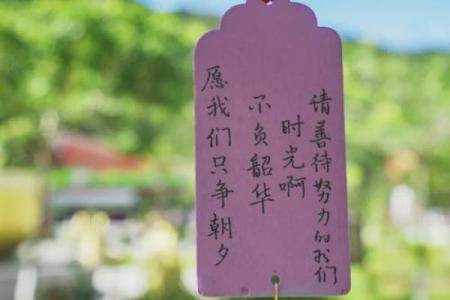 时光啊
请善待努力的我们
不负韶华
愿我们只争朝夕